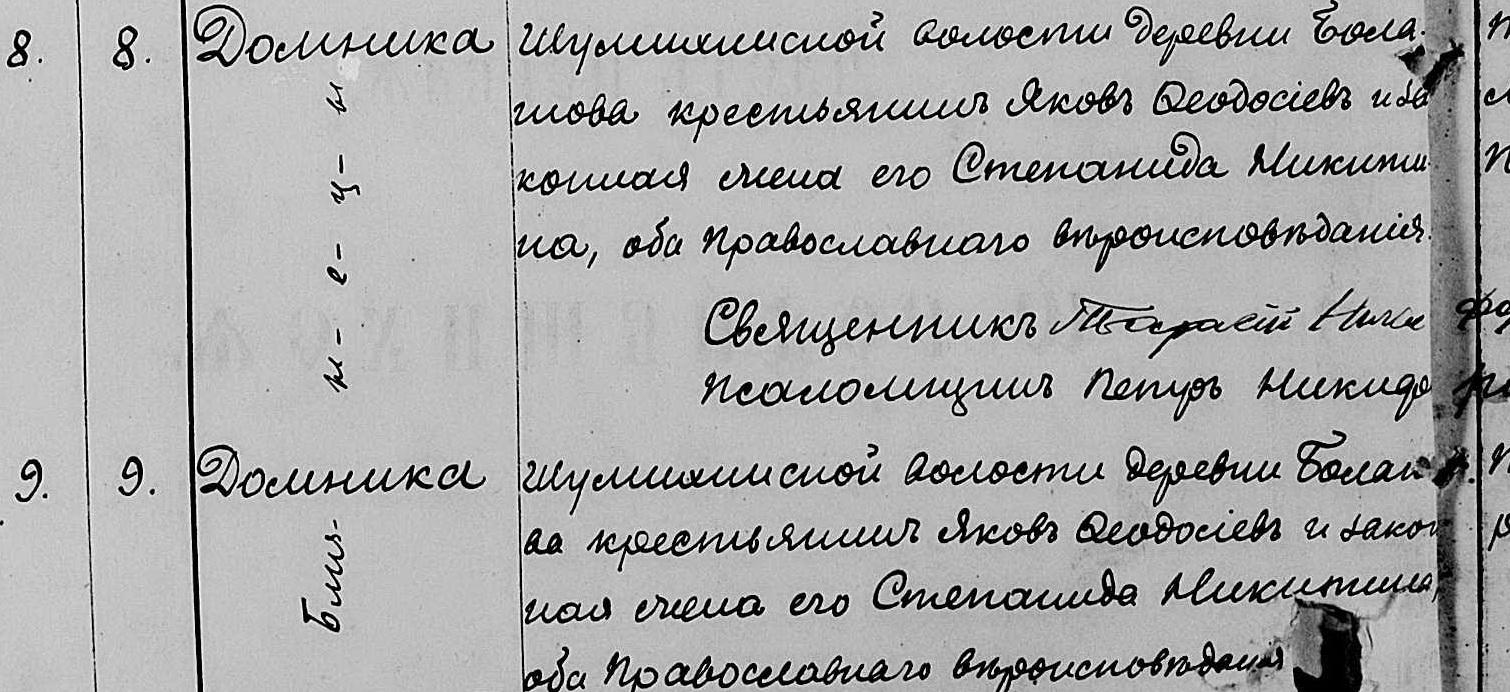 8. 8. Домника Шумихинской волости деревни Бола-
шова крестьянинъ Яковъ Ѳеодосіевъ и за
конная жена его Степанида Никити
на, оба Православнаго вѣроисповѣданія.
Священникъ Тарасій
Псаломщикъ Петръ
9. 9. Домника Шумихинской волости деревни
ва крестьянинъ Яковъ Ѳеодосіевъ и закон
ная жена его Степанида Никитина,
оба Православнаго вѣроисповѣданія